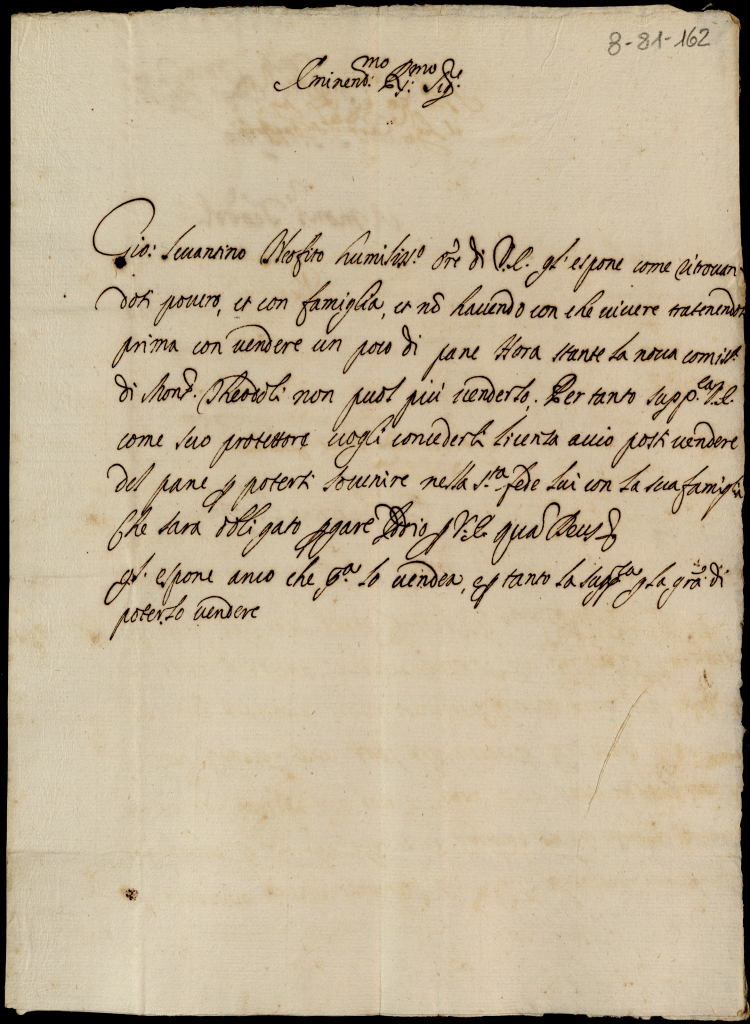 8-81-162
Eminend.mo R.mo Sig.re
Gio: levantino Neofito humiliss.o ore di V.E. gl'espone come ritrovan-
dosi povero, et con famiglia, et nō havendo con che vivere tratenendosi
prima con vendere un poco di pane Hora stante la nova comiss.e
di Mons.r Theodoli non puol piu venderlo. Per tanto supp.ca V.E.
come suo protettore vogli concederli licenza accio possi vendere
del pane p potersi sovenire nella S.ta fede lui con la sua famiglia
che sara obligato pgare Iddio p V.E. qua Deus
gl'espone anco che p.a lo vendea, e p tanto la supp.ca p la gra di
poterlo vendere